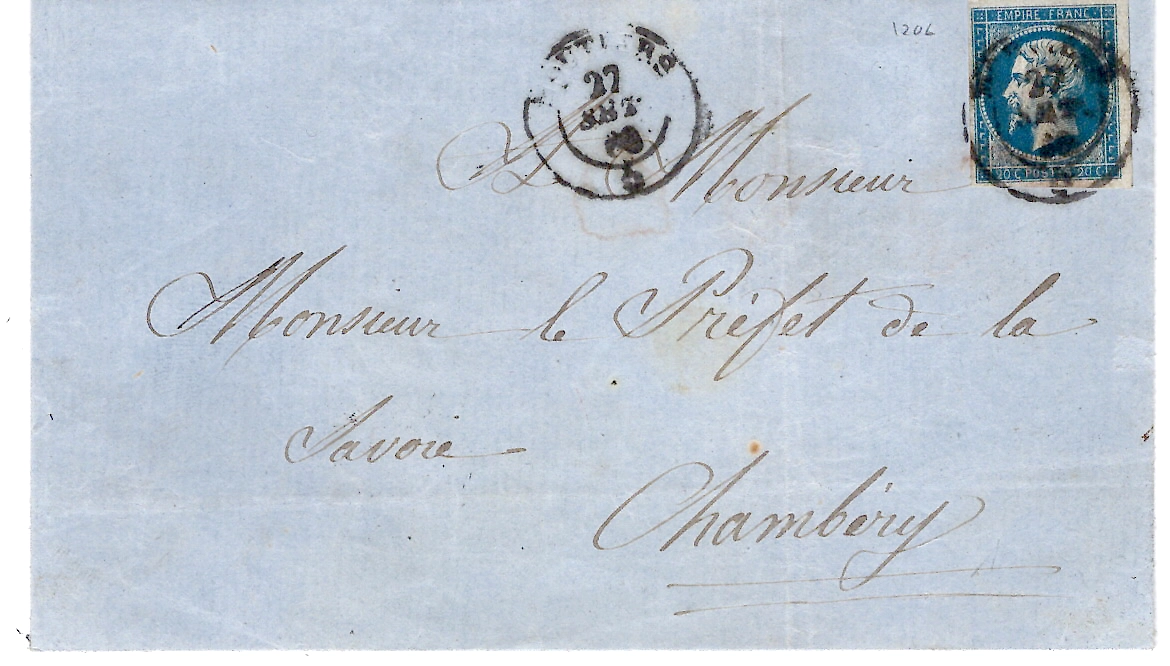 1206
EMPIRE FRANC.
MOUTIERS
27
27
SEPT
20 C. POSTES 20 C.
A Monsieur
Monsieur le Préfet de la
Savoie
Chambéry